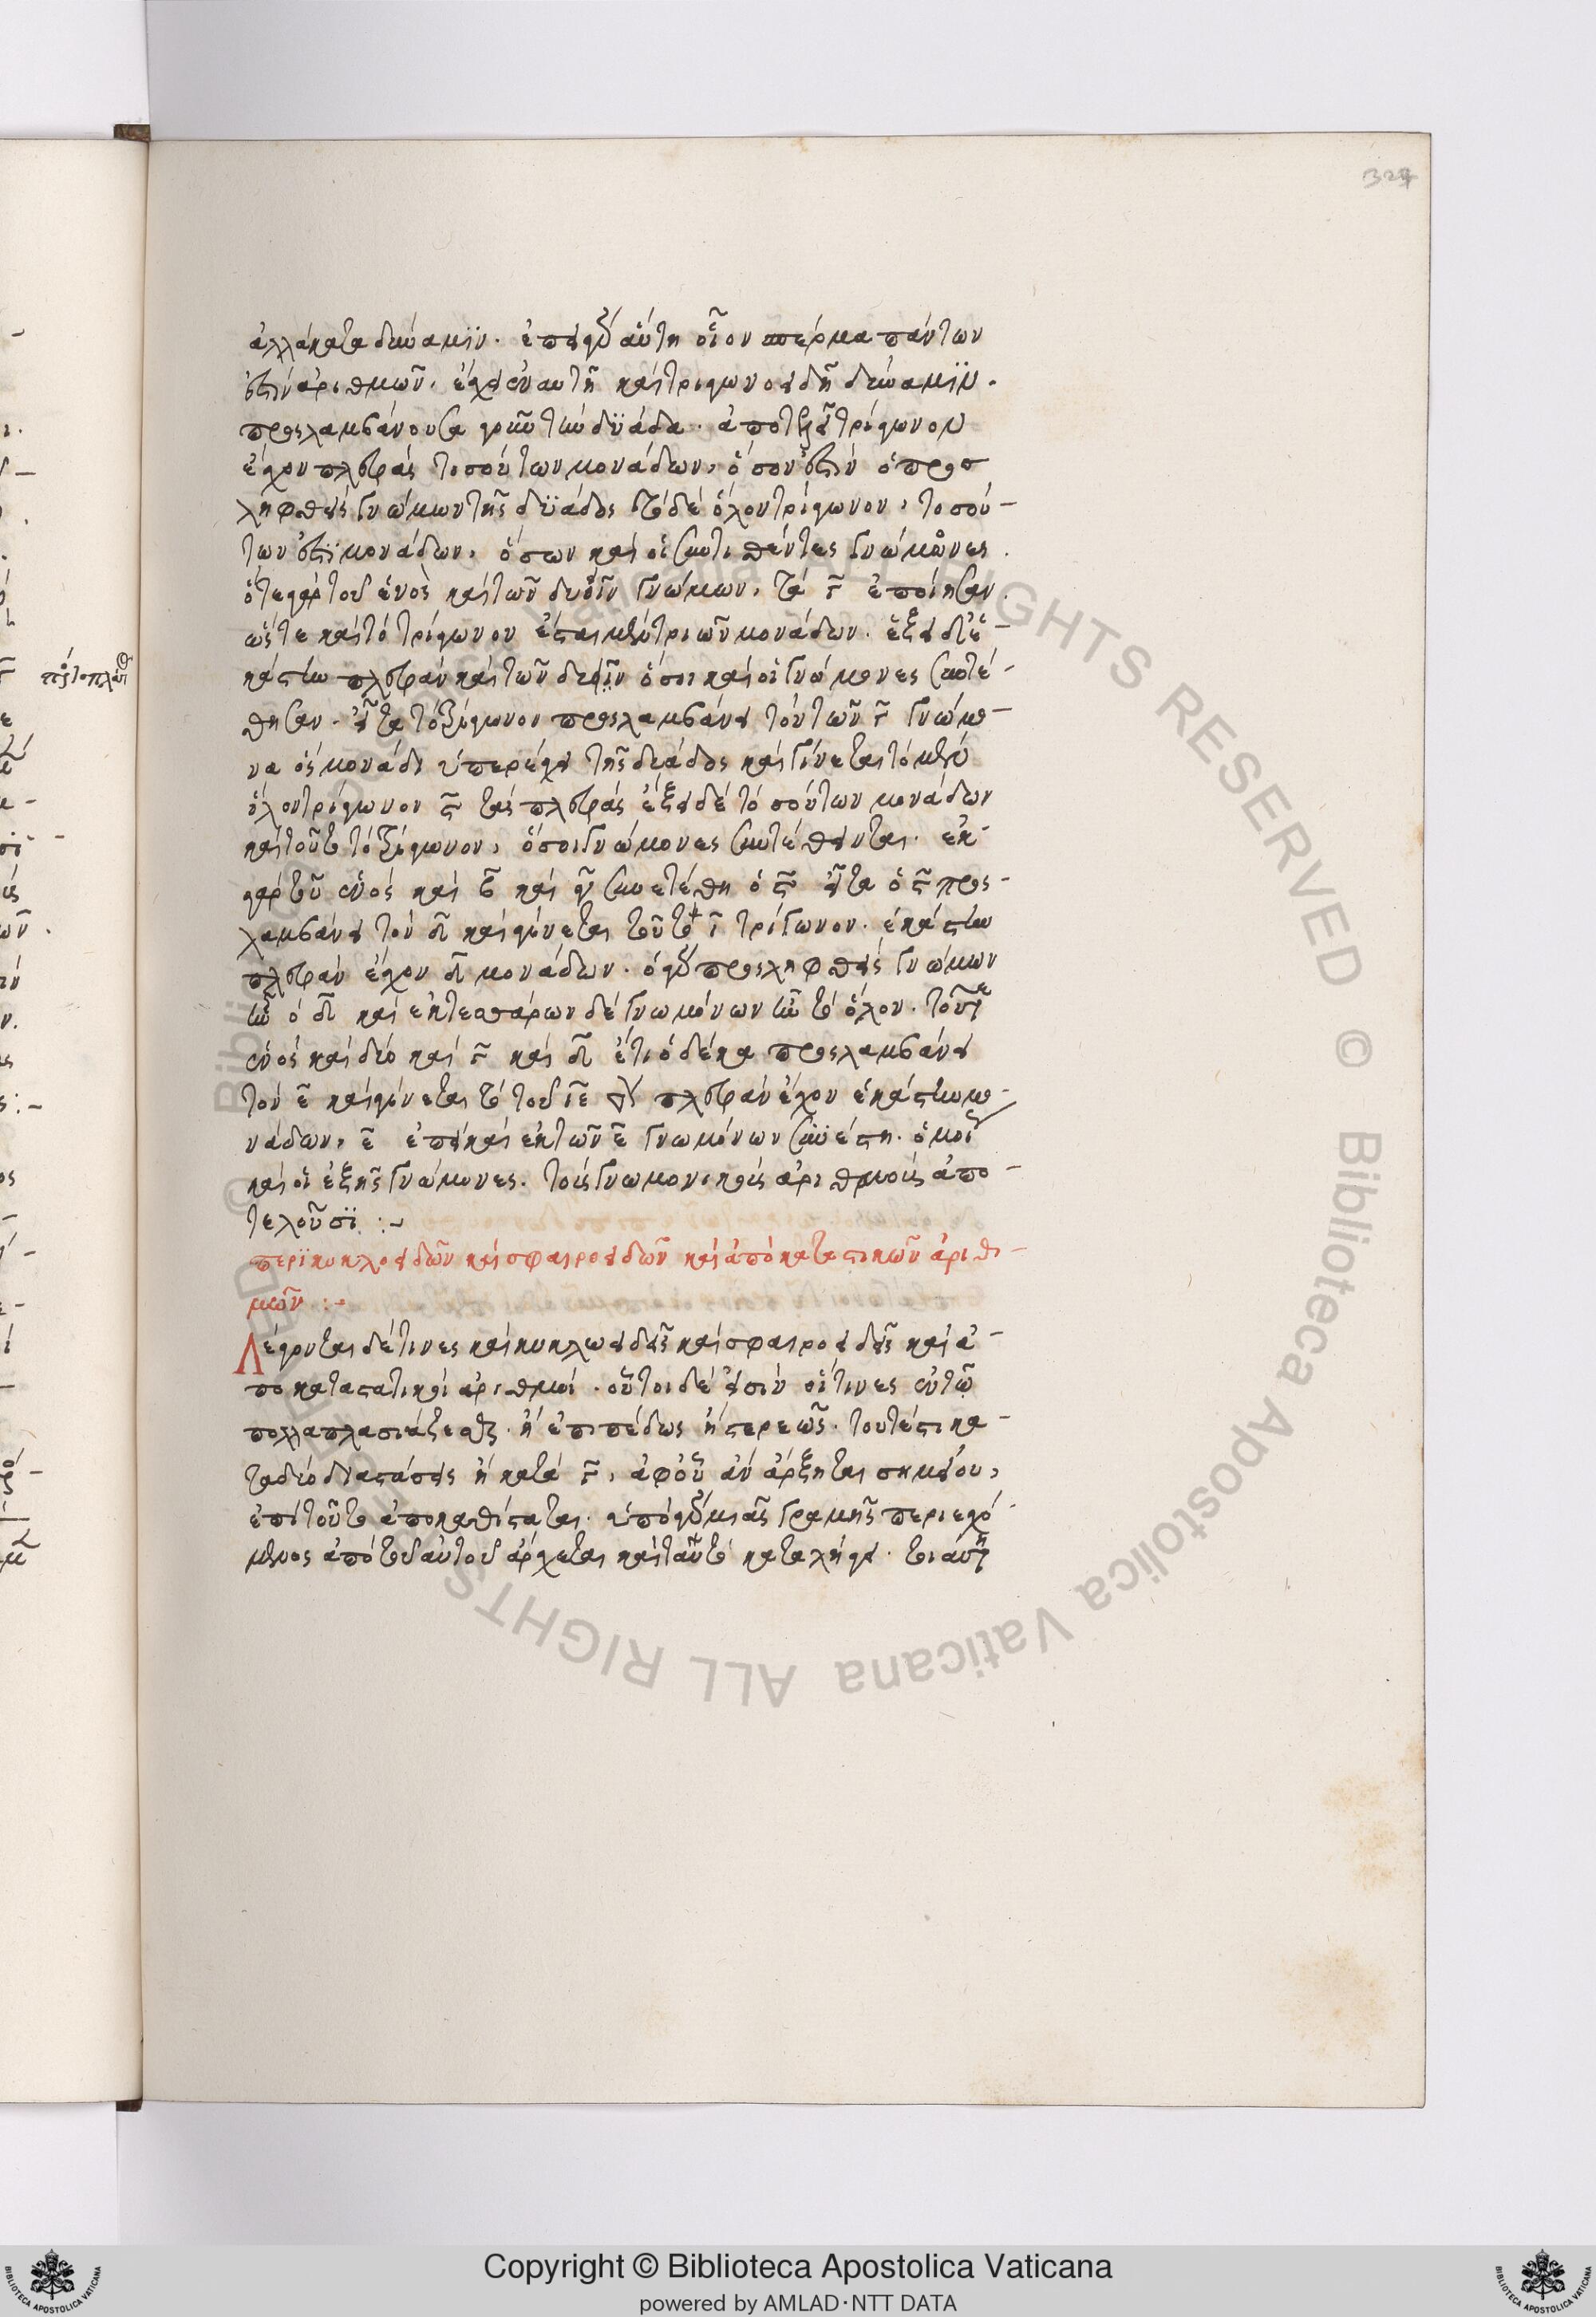 327
ἀλλὰ κατα δύναμϊν. ἐπεὶ γὰρ αὕτη οἷον σπέρμα πάντων
ἐστὶν ἀριθμῶν, ἔχει ἐν αυτῆ καὶ τριγωνοειδῆ δύναμϊν.
προσλαμβάνουσα γοῦν τὴν δϋάδα. ἀποτελεῖ τρίγωνον
ἔχον πλευρὰς τοσούτων μονάδων, ὅσον ἐστὶν ὁ προσ
ληφθεὶς γνώμων τῆς δϋάδος τὸ δὲ ὅλον τρίγωνον, τοσού-
των ἐστϊ μονάδων, ὅσων καὶ οἱ συντιθέντες γνώμονες.
ὅτε γὰρ τοῦ ἑνὸς καὶ τῶν δυοῖν γνώμων, τὰ γ̄ ἐποίησαν.
ὥστε καὶ τὸ τρίγωνον ἔσται μὲν τριῶν μονάδων. ἕξει δὲ ἑ-
κάστην πλευρὰν καὶ τῶν δυεῖν ὅσοι καὶ οἱ γνώμονες συνετέ-
θησαν. εἶτα τὸ τρίγωνον προσλαμβάνει τὸν τῶν γ̄ γνώμο-
να ὃς μονάδι ὑπερέχει τῆς δυάδος καὶ γίνεται τὸ μὲν
ὅλον τρίγωνον ϛ̄ τὰς πλευρὰς ἕξει δὲ τοσούτων μονάδων
καὶ τοῦτο τὸ τρίγωνον, ὅσοι γνώμονες συντέθεινται. ἐκ
γὰρ τοῦ ἑνὸς καὶ β̄ καὶ γ̄ συνετέθη ὁ ϛ̄ εἶτα ὁ ϛ̄ προσ-
λαμβάνει τὸν δ̄ καὶ γίνεται τοῦτο ῑ τρίγωνον. ἑκάστην
πλευρὰν ἔχον δ̄ μονάδων. ὁ γὰρ προσληφθεὶς γνώμων
ἦν ὁ δ̄ καὶ ἐκ τεσσάρων δὲ γνωμόνων ἦν τὸ ὅλον. τοῦτε
ἑνὸς καὶ δύο καὶ γ̄ καὶ δ̄ ἔτι ὁ δέκα προσλαμβάνει
τὸν ε̄ καὶ γίνεται τὸ τοῦ ιε̄ πλευρὰν ἔχον ἑκάστην μο-
νάδων, ε̄ ἐπεὶ καὶ ἐκ τῶν ε̄ γνωμόνων συνέστη. ὁμοί
καὶ οἱ ἑξῆς γνώμονες. τοὺς γνωμονικοὺς ἀριθμοὺς ἀπο-
τελοῦσϊ :-
περϊ κυκλοειδῶν καὶ σφαιροειδῶν καὶ ἀποκαταστικῶν ἀριθ-
μῶν :-
Λέγονται δέ τινες καὶ κυκλωειδεῖς καὶ σφαιροειδεῖς καὶ ἀ-
ποκαταστατικοὶ ἀριθμοί. οὗτοι δέ εἰσιν οἵτινες ἐν τῶ
πολλαπλασιάζεσθαι. ἢ ἐπιπέδως ἢ στερεῶς. τουτέστι κα-
τὰ δύο διαστάσεις ἢ κατὰ γ̄, ἀφ' οὗ ἂν ἄρξηται σημείου,
ἐπὶ τοῦτο ἀποκαθίσταται. ὑπὸ γὰρ μιᾶς γραμῆς περιεχό-
μενος ἀπὸ τοῦ αὐτοῦ ἄρχεται καὶ ταὐτὸ καταλήγει. τοιαύτη